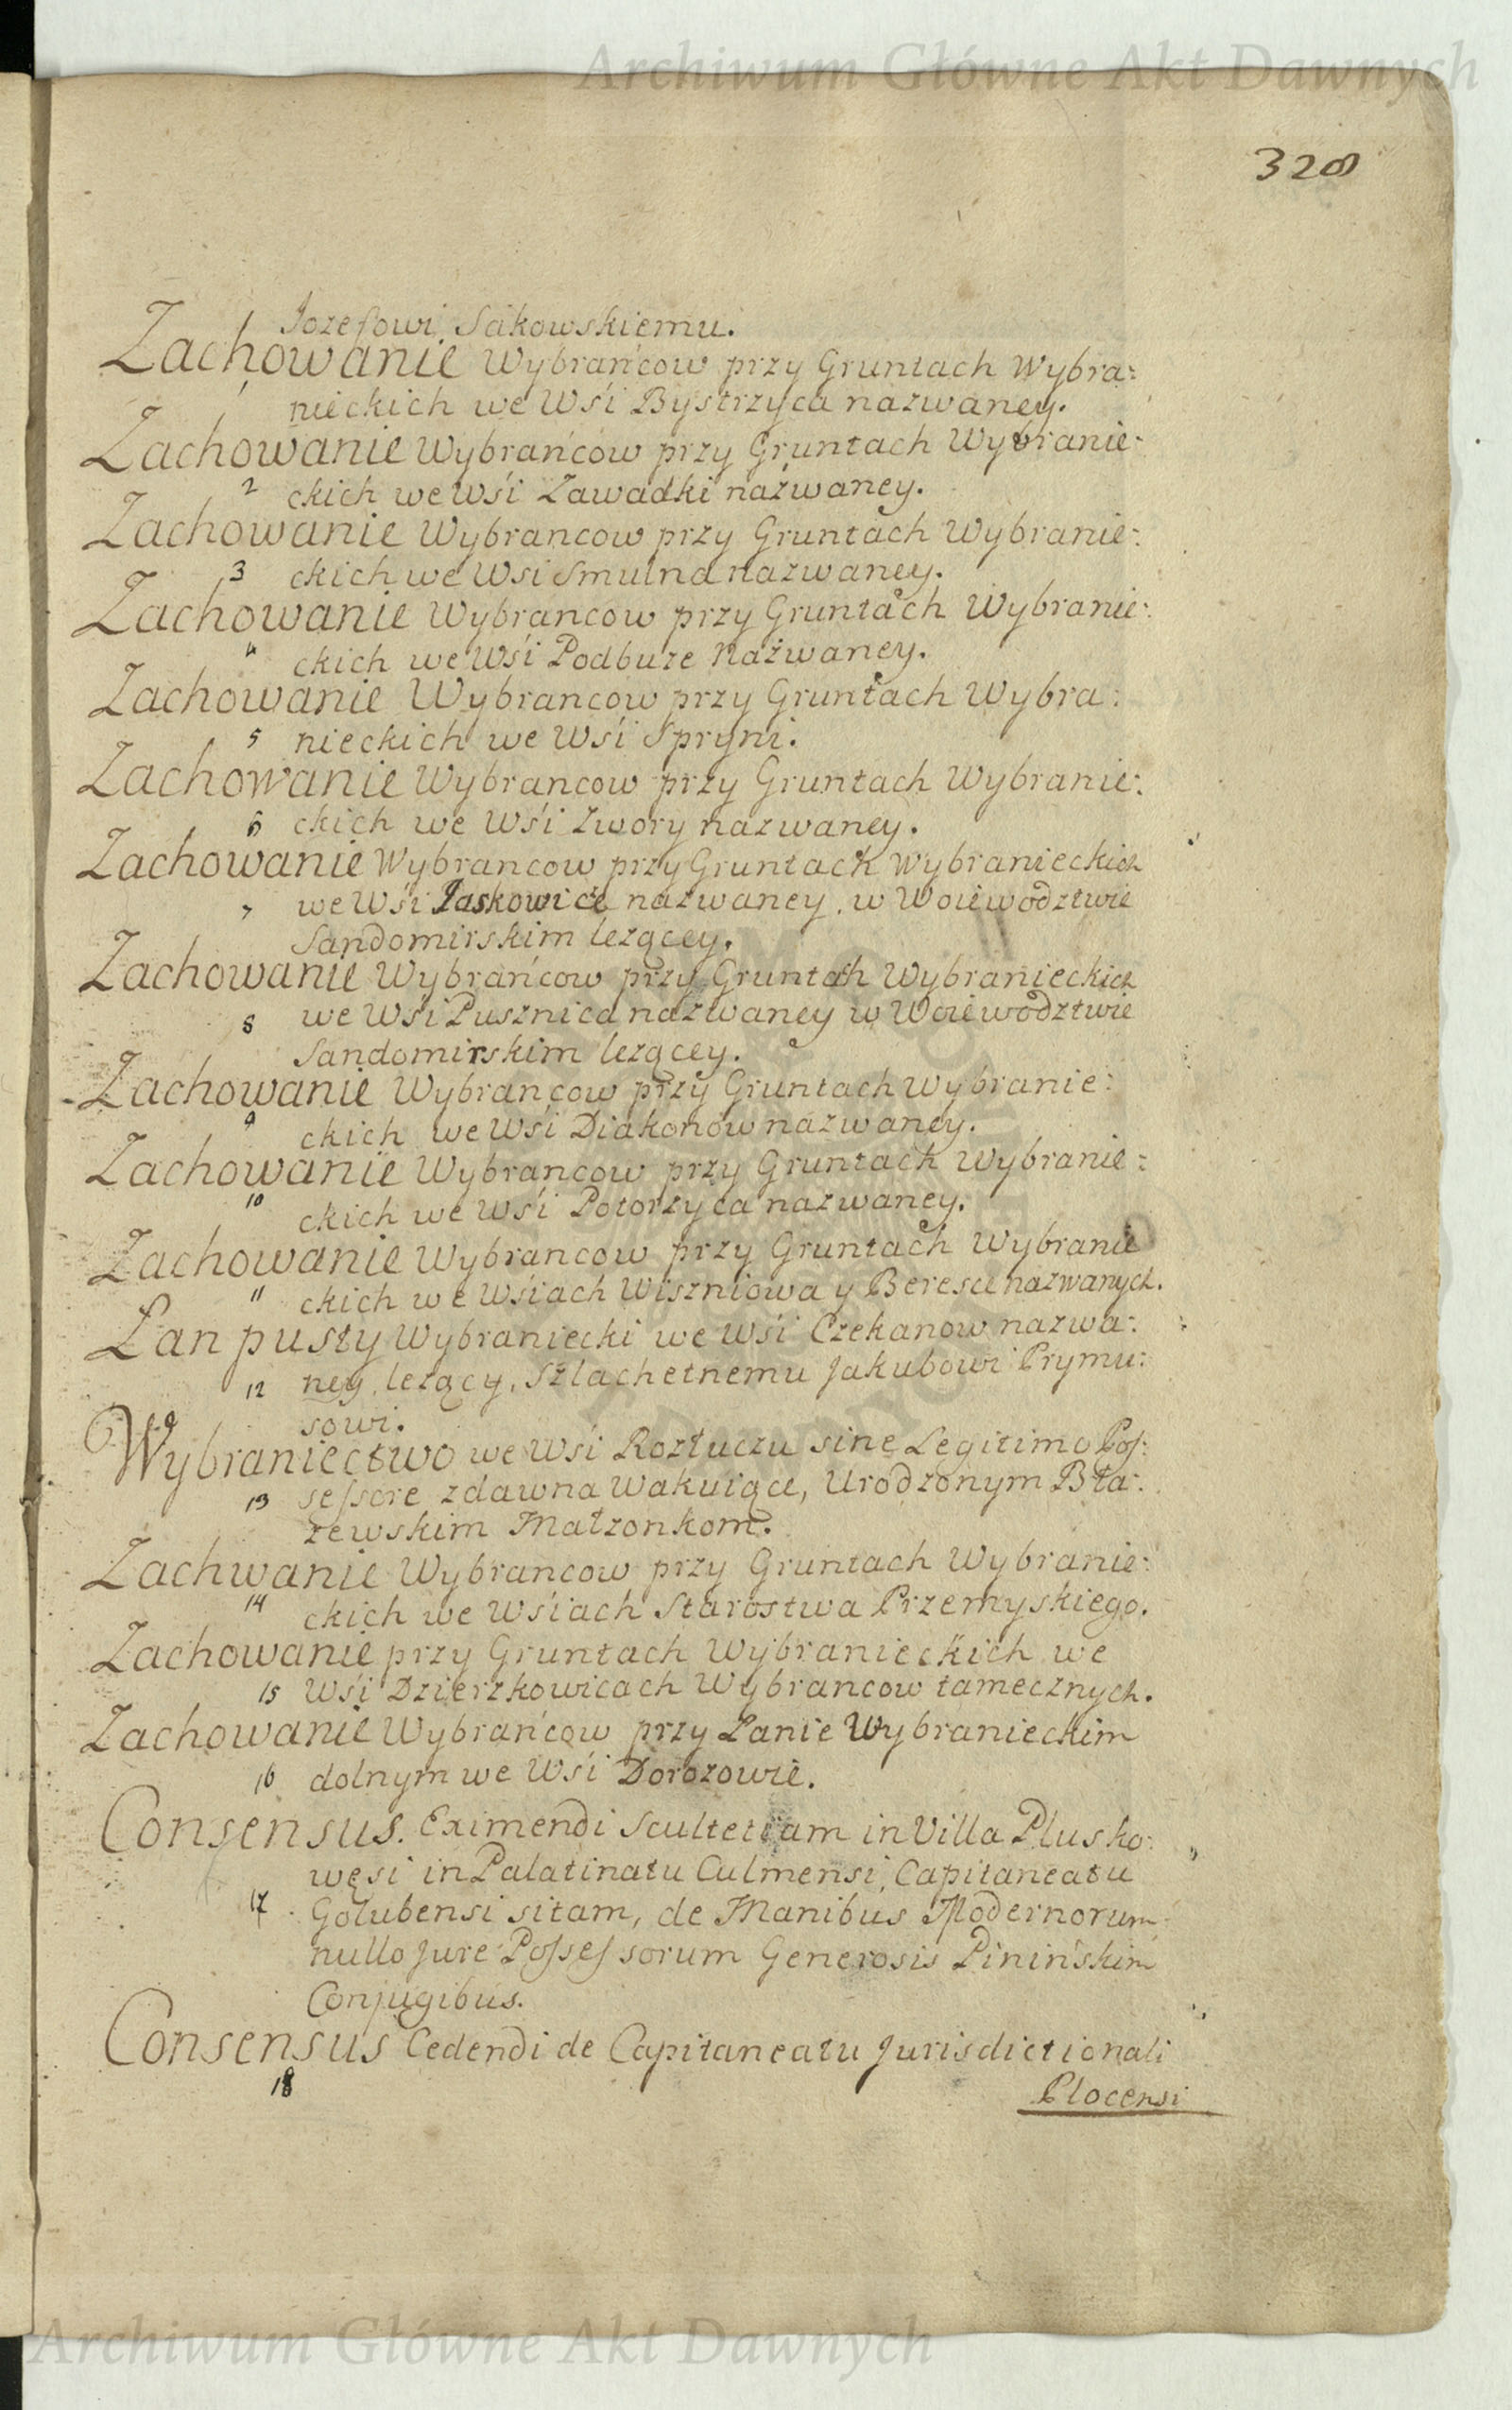 Archiwum Główne Akt Dawnych
328
Jozefowi Sakowskiemu.
Zachowanie Wybrańcow przy Gruntach Wybra:
1 nieckich we Wśi Bystrzyca nazwaney.
Zachowanie Wybrańcow przy Gruntach Wybranie:
2 ckich we Wśi Zawadki nazwaney.
Zachowanie Wybrancow przy Gruntach Wybranie:
3 ckich we Wsi Smulna nazwaney.
Zachowanie Wybrancow przy Gruntach Wybranie:
4 ckich we Wśi Podbuze Nazwaney.
Zachowanie Wybrancow przy Gruntach Wybra:
5 nieckich we Wśi Spryni.
Zachowanie Wybrancow przy Gruntach Wybranie:
6 ckich we Wśi Zwory nazwaney.
Zachowanie Wybrancow przy Gruntach Wybranieckich
7 we Wśi Jaskowice nazwaney, w Woiewodztwie
Sandomirskim lezącey.
Zachowanie Wybrańcow przy Gruntach Wybranieckich
8 we Wśi Pusznica nazwaney w Woiewodztwie
Sandomirskim lezącey.
Zachowanie Wybrancow przy Gruntach Wybranie:
9 ckich we Wśi Diakonow nazwaney.
Zachowanie Wybrancow przy Gruntach Wybranie:
10 ckich we Wśi Potorzyca nazwaney.
Zachowanie Wybrancow przy Gruntach Wybranie
11 ckich we Wśiach Wiszniowa y Beresce nazwanych.
Łan pusty Wybraniecki we Wśi Czekanow nazwa:
12 ney, lezący, Szlachetnemu Jakubowi Prymu:
sowi.
Wybraniectwo we Wśi Rozłuczu sine Legitimo Pos:
13 sessore zdawna Wakuiące, Urodzonym Bła:
zewskim Małzonkom.
Zachwanie Wybrancow przy Gruntach Wybranie:
14 ckich we Wśiach Starostwa Przemyskiego.
Zachowanie przy Gruntach Wybranieckich we
15 Wśi Dzierzkowicach Wybrancow tamecznych.
Zachowanie Wybrańcow przy Łanie Wybranieckim
16 dolnym we Wśi Dorozowie.
Consensus. Eximendi Scultetiam in Villa Plusko:
węsi in Palatinatu Culmensi, Capitaneatu
17 Golubensi sitam, de Manibus Modernorum
nullo Jure Possessorum Generosis Pinińskim
Conjugibus.
Consensus Cedendi de Capitaneatu Jurisdictionali
18 Plocensi
Archiwum Główne Akt Dawnych